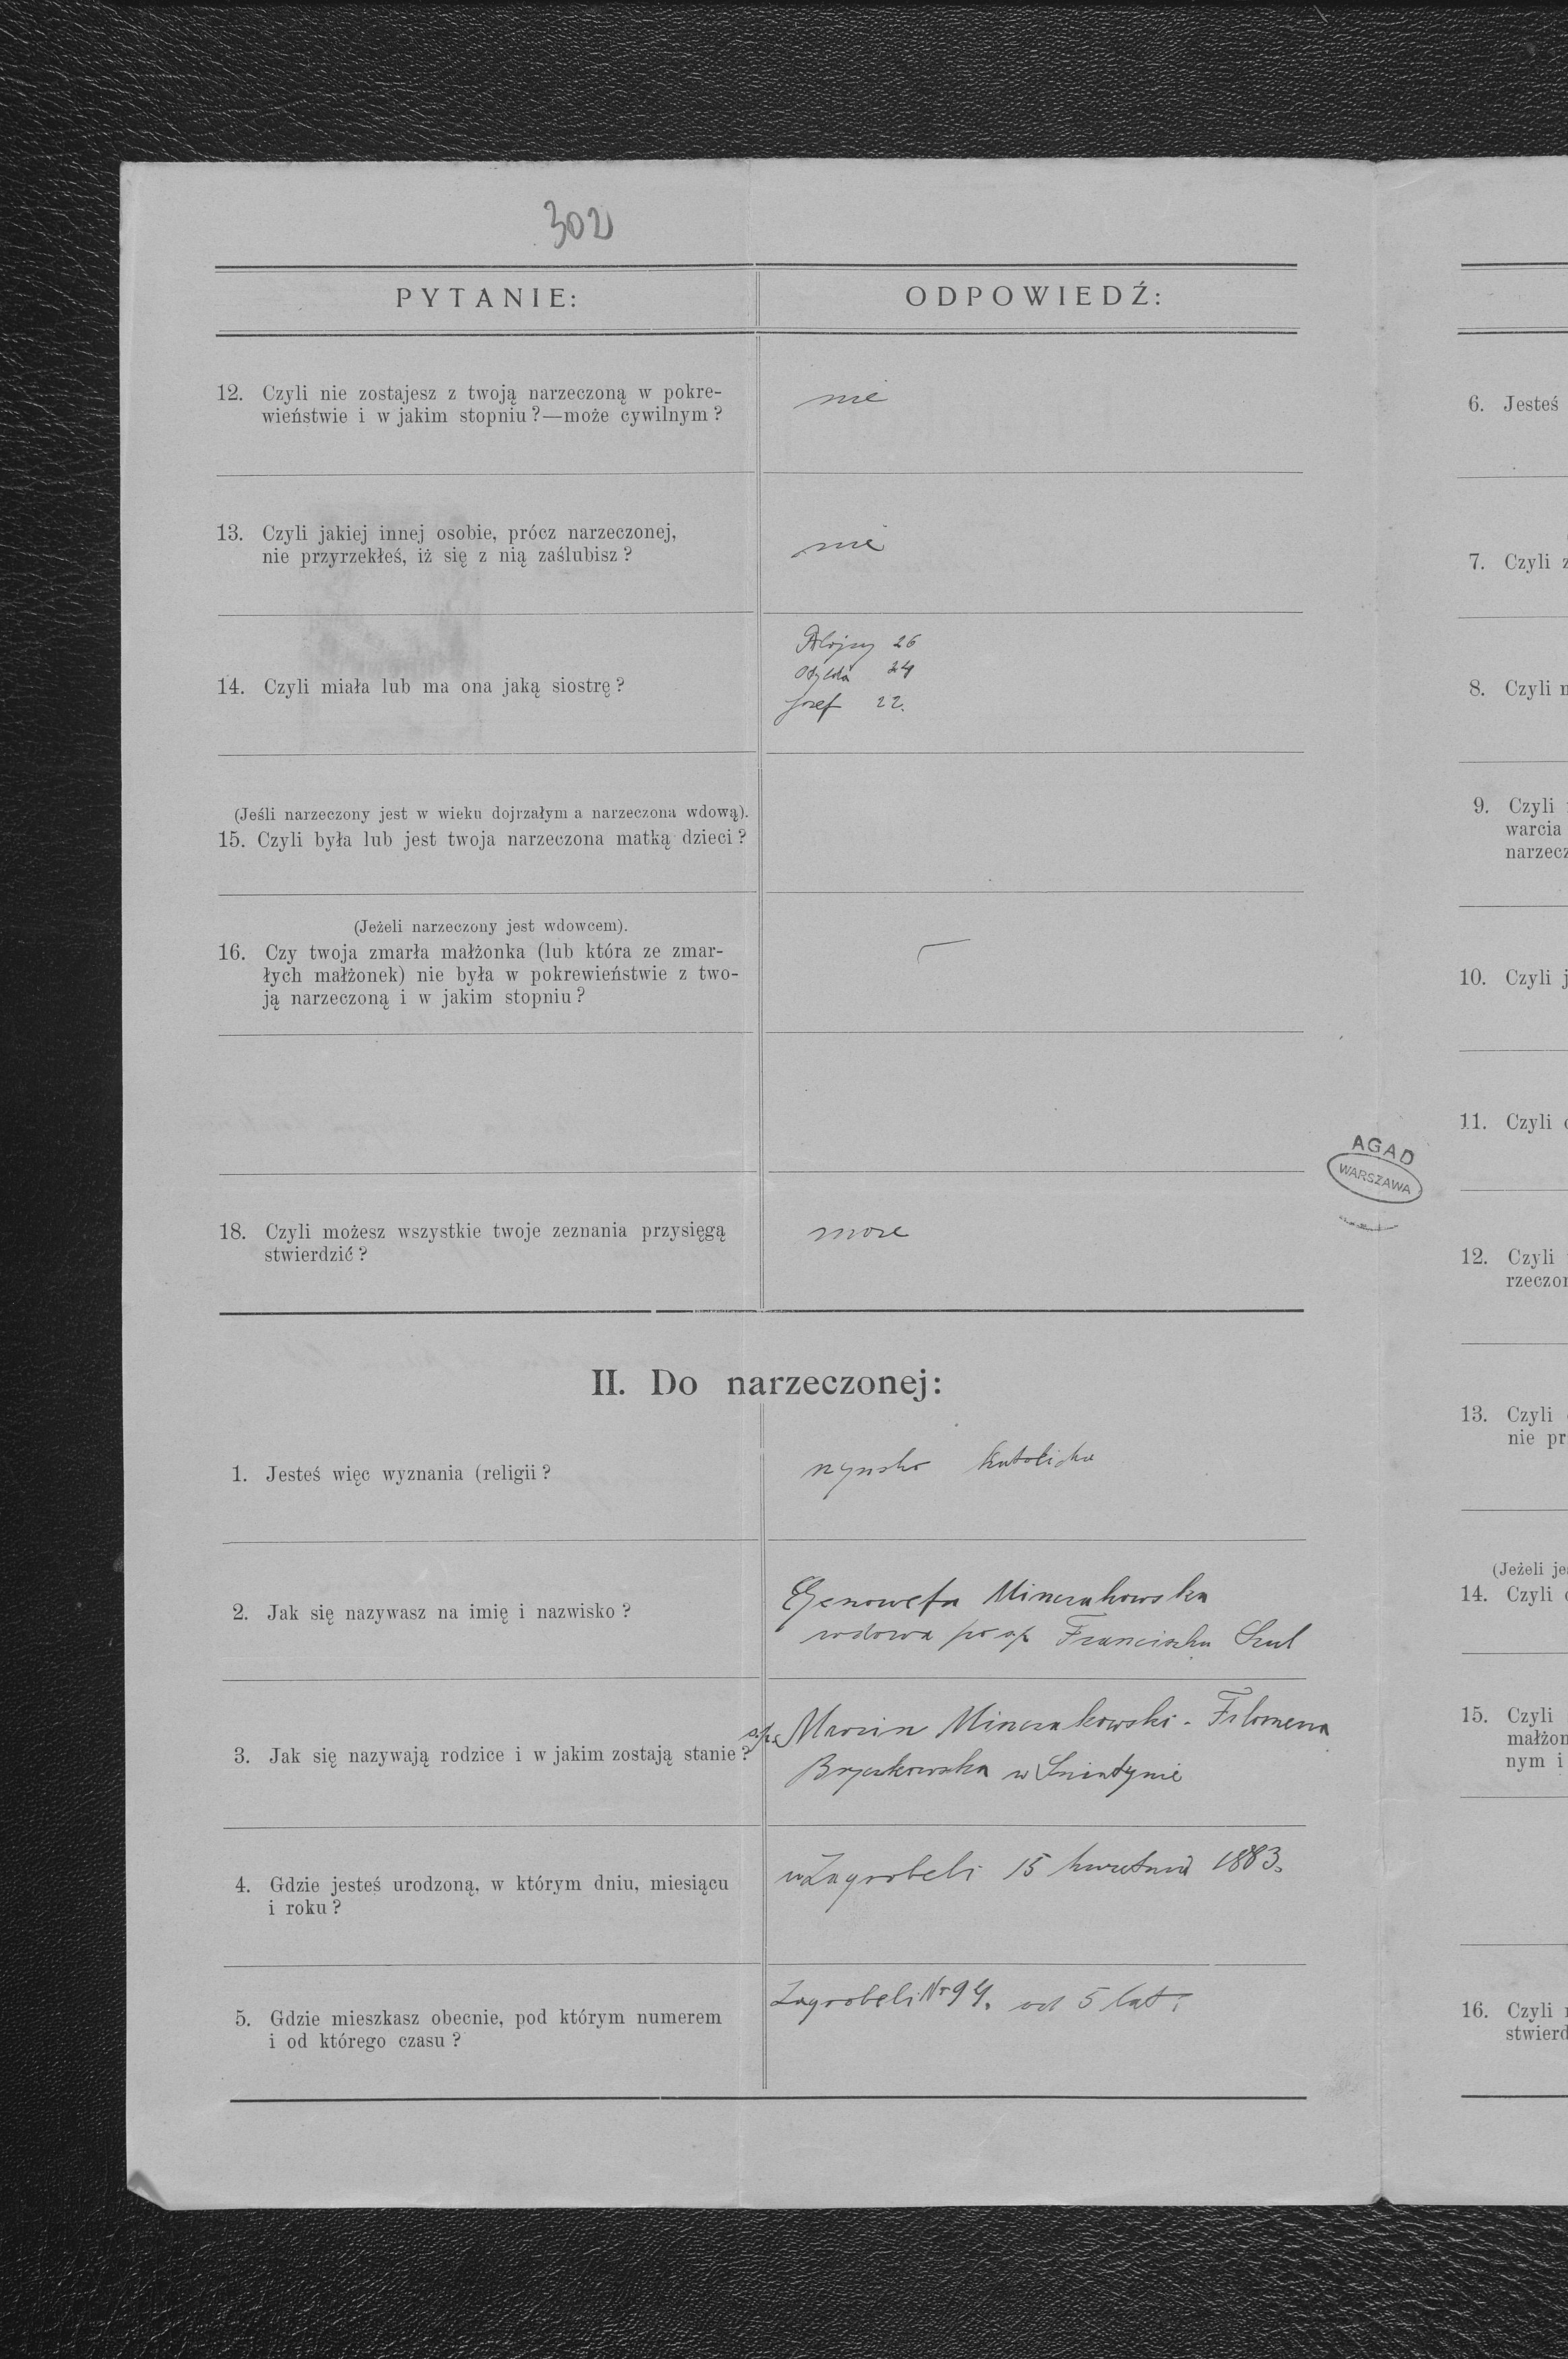 302
PYTANIE:
ODPOWIEDŹ:
12. Czyli nie zostajesz z twoją narzeczoną w pokre-
wieństwie i w jakim stopniu?—może cywilnym?
nie
13. Czyli jakiej innej osobie, prócz narzeczonej,
nie przyrzekłeś, iż się z nią zaślubisz?
nie
14. Czyli miała lub ma ona jaką siostrę?
Alojzy 26
24
Josef 22.
(Jeśli narzeczony jest w wieku dojrzałym a narzeczona wdową).
15. Czyli była lub jest twoja narzeczona matką dzieci?
(Jeżeli narzeczony jest wdowcem).
16. Czy twoja zmarła małżonka (lub która ze zmar-
łych małżonek) nie była w pokrewieństwie z two-
ją narzeczoną i w jakim stopniu?
18. Czyli możesz wszystkie twoje zeznania przysięgą
stwierdzić?
może
II. Do narzeczonej:
1. Jesteś więc wyznania (religii?
rzymsko katolicka
2. Jak się nazywasz na imię i nazwisko?
Genowefa Minczakowska
wdowa po śp Franciszku Szul
3. Jak się nazywają rodzice i w jakim zostają stanie?
śp. Marcin Minczakowski - Filomena
w Śniatynie
4. Gdzie jesteś urodzoną, w którym dniu, miesiącu
i roku?
w Zagrobeli 15 kwietnia 1883.
5. Gdzie mieszkasz obecnie, pod którym numerem
i od którego czasu?
Zagrobeli Nr 94. od 5 lat.
AGAD
WARSZAWA
6. Jesteś
7. Czyli z
8. Czyli
9. Czyli
warcia
narzecz
10. Czyli j
11. Czyli
12. Czyli
rzeczon
13. Czyli
nie pr
(Jeżeli je
14. Czyli
15. Czyli
małżon
nym i
16. Czyli
stwierd